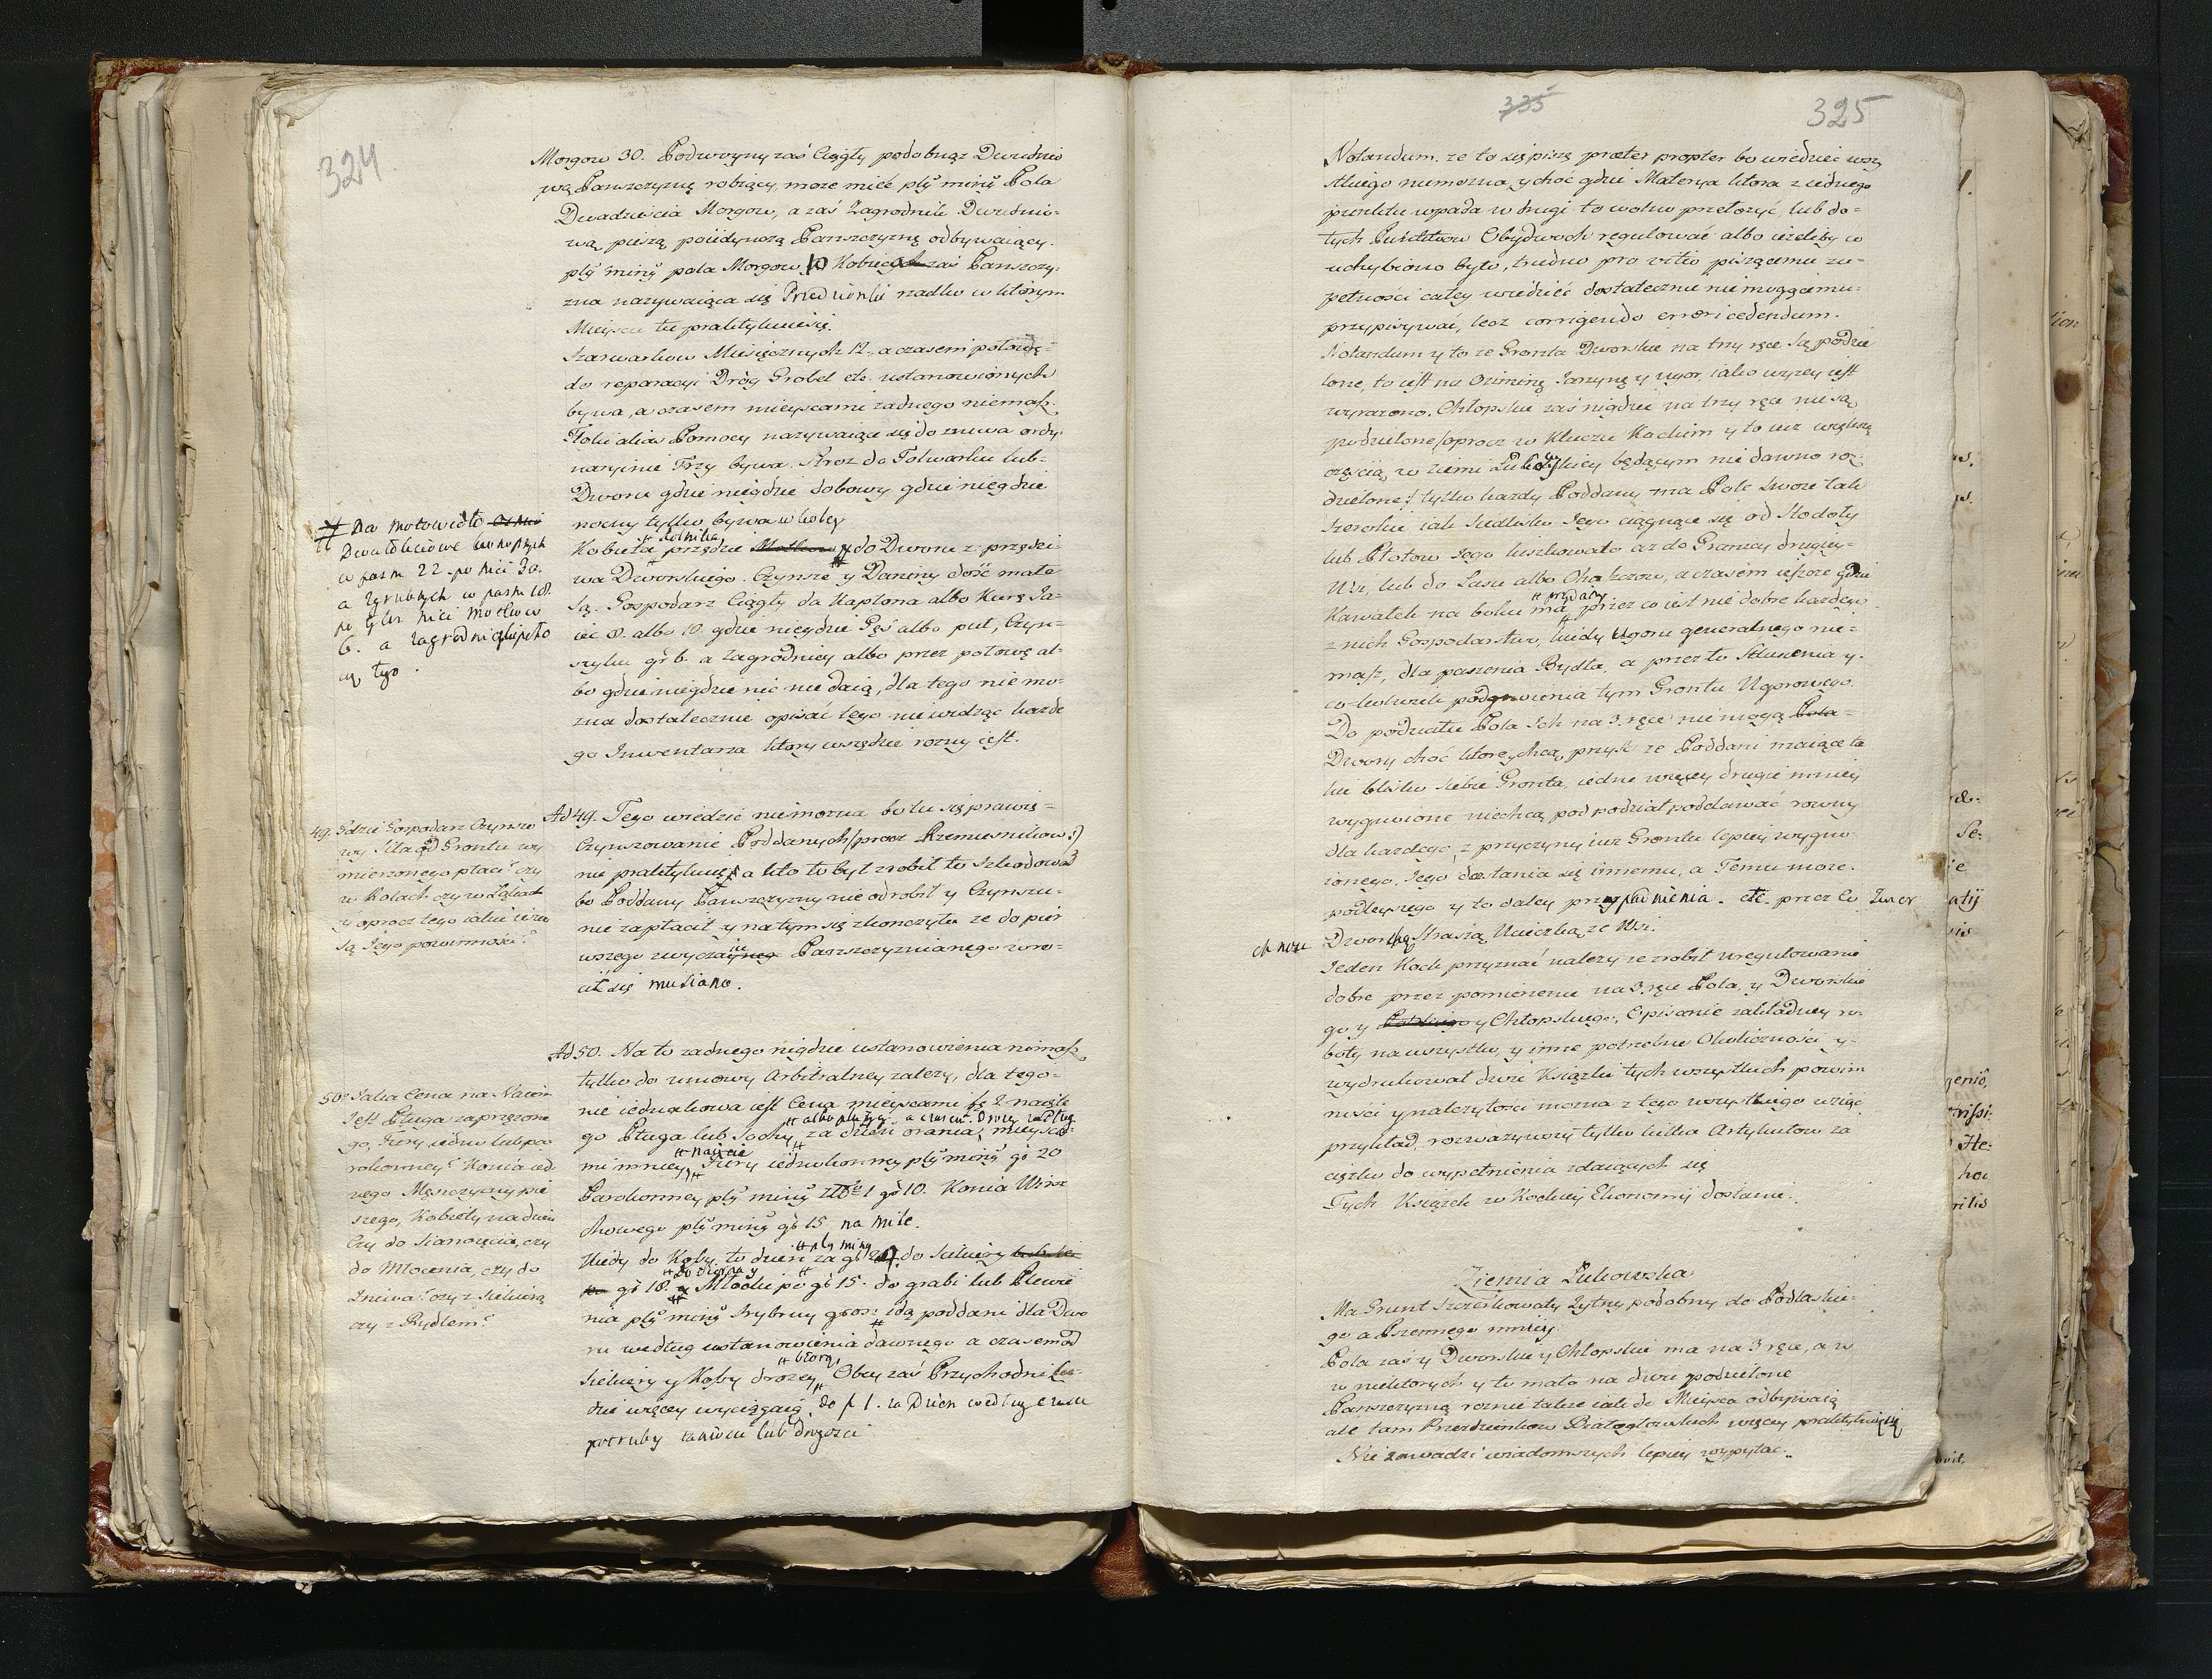 324
Morgow 30. Podwoyny zaś Ciągły podobnąż Dwudnio
wą Panszczyznę robiący, moze mieć plỹ minỹ Pola
Dwadzieścia Morgow, a zaś Zagrodnik Dwudnio-
wą pieszą poiedynczą Panszczyznę odbywaiący.
plỹ minỹ pola Morgow 10 Kobiec zaś Panszczy-
zna nazywaiąca się Przedzionki rzadko w ktorym
Mieyscu tu praktykuie się.
Szarwarkow Miesięcznych 12. a czasem połowę-
do reparacyi Dróg Grobel etc. ustanowionych
bywa, a czasem mieyscami zadnego niemasz.
Tłoki alias Pomocy nazywaiące się do zniwa ordy-
naryinie Trzy bywa. Stroz do Folwarku lub-
Dworu gdzie niegdzie dobowy gdzie niegdzie
nocny tylko bywa w koley
Kobieta przędzie do Dworu z przędzi-
wa Dworskiego. Czynsze y Daniny dość małe
Są. Gospodarz Ciągły da Kapłona albo Kurę Ja-
iec 8. albo 10. gdzie niegdzie Gęś albo puł, Czyn-
szyku gr 6. a Zagrodnicy albo przez połowę al-
bo gdzie niegdzie nic nie daią, dla tego nie mo-
zna dostatecznie opisać tego nie widząc kazde
go Inwentarza ktory wszędzie rozny iest.
na motowidło
Dwułokciowe konopnych
w pasm 22 po nici 30.
a zgrubnych w pasm 18.
6. a
tego.
49. Gdzie Gospodarz Czynszo
wy Ila od Gruntu wy
mierzonego płaci? czy
w Kołach czy w Łąkach
y oprocz tego iakie inne
Są Jego powinności?
Ad 49. Tego wiedzić niemozna bo tu się prawie-
Czynszowanie Poddanych /:procz Rzemieśnikow:/
nie praktykuie, a kto to był zrobił to szkodował
bo Poddany Panszczyzny nie odrobił y Czynszu-
nie zapłacił y natym się skonczyło ze do pier
wszego zwyczaiu Panszczyznianego wro-
cić się musiano.
50. Jaka Cena na Naiem
Jest Pługa zaprzężone
go, Fury iedno lub pa
rokonney? Konia ied
nego Męszczyzny pie
szego, Kobiety na dzien
Czy do Sianożęcia, czy
do Młocenia, czy do
Zniwa? czy z Siekierą
czy z Rydlem?
Ad 50. Na to zadnego nigdzie ustanowienia nimasz
tylko do umowy Arbitralney zalezy, dla tego-
nie iednakowa iest Cena mieysami fł 2 naięte
albo płużycy a czasem drożey za Pług
go Pługa lub Sochy, za dzień orania, mieysca-
naięcie
mi mniey, Fury iednokonney plỹ minỹ gr 20
Parokonney plỹ minỹ zło 1 gr 10. Konia Wirz
chowego plỹ minỹ gr 15 na mile.
plỹ minỹ
Kiedy do Kosy, to dzień za gr do Siekiery
gr 18. Młocki po gr 15. do grabi lub Plewie
nia plỹ minỹ Srybrny grosz idą poddani dla Dwo
ru według ustanowienia dawnego a czasem od
biorą,
Siekiery y Kosy drozey, Obcy zaś Przychodni lu-
dzie więcey wyciągaią, do f 1. za Dzień według czasu
potrzeby taniości lub drogości
335
325
Notandum. ze to się piszę præter propter bo wiedziec wszy
stkiego niemozna, y choć gdzie Materya ktora z iednego
punktu wpada w drugi to wolno przełozyć, lub do-
tych Punktow Obydwoch regulować albo iezeliby co
uchybiono było, trudno pro vitio piszącemu zu-
pełności całey wiedzieć dostatecznie nie mogącemu-
przypisywać, lecz corrigendo errori cedendum.
Notandum y to ze Gronta Dworskie na trzy ręce Są podzie
lone, to iest na Oziminę Jarzynę y ugor, iako wyzey iest
wyrazono. Chłopskie zaś nigdzie na trzy ręce nie są
podzielone /:oprocz w Kluczu Kockim y to iuz większą
częścią w Ziemi Łukowskiey będącym nie dawno roz-
dzielone:/ tylko kazdy Poddany ma Pole swoie tak
szerokie iak Siedlisko Jego ciągnące się od Stodoły
lub Płotow Jego kiszkowato az do Granicy drugiey-
Wsi, lub do Lasu albo Chaszczow, a czasem ieszcze gdzie
przydany
Kawałek na boku ma, przez co iest nie dobre kazdego
z nich Gospodarstwo, kiedy Ugoru generalnego nie-
masz, dla paszenia Bydła, a przez to Słuzenia y-
co kolwiek podgnoienia tym Gruntu Ugorowego.
Do podziału Pola Ich na 3. ręce nie mogą
Dwory choć ktore chcą, przyść ze Poddani maiące ta
kie blisko siebie Gronta, iedne więcey drugie mniey
wygnoione niechcą pod podział poddawać rowny
dla kazdego, z przyczyny iuz Gruntu lepiey wygno-
ionego, Jego dostania się innemu, a Temu moze-
podleyszego y to daley przypadnienia. etc. przez co Zwierz
ch nosc Dworską Straszą Ucieczką ze Wsi.
Jeden Kock przyznać nalezy ze zrobił uregulowanie
dobre przez pomierzenie na 3. ręce Pola, y Dworskie
go y Chłopskiego, Opisanie zakładney ro-
boty na wszystko, y inne potrzebne Okoliczności y-
wydrukował dwie Książki tych wszystkich powin
ności y nalezytości mozna z tego wszystkiego wziąć
przykład, rozwazywszy tylko kilka Artykułow za
cięzko do wypełnienia zdaiących się
Tych Książek w Kockiey Ekonomij dostanie.
Ziemia Łukowska
Ma Grunt Szcerkowaty Zytny podobny do Podlaskie-
go a Pszennego mniey.
Pola zaś y Dworskie y Chłopskie ma na 3 ręce, a w
w niektorych y to mało na dwie podzielone
Panszczyznę roznie także iak do Mieysca odbywaią
ale tam Przedzionkow Białogłowskich więcey praktykuią się
Nie zawadzi wiadomszych lepiey wypytać.